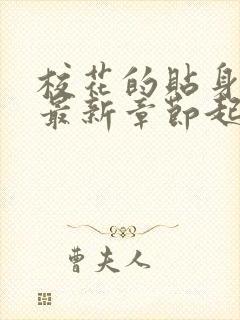 校花的贴身
最新章節起
曹夫人